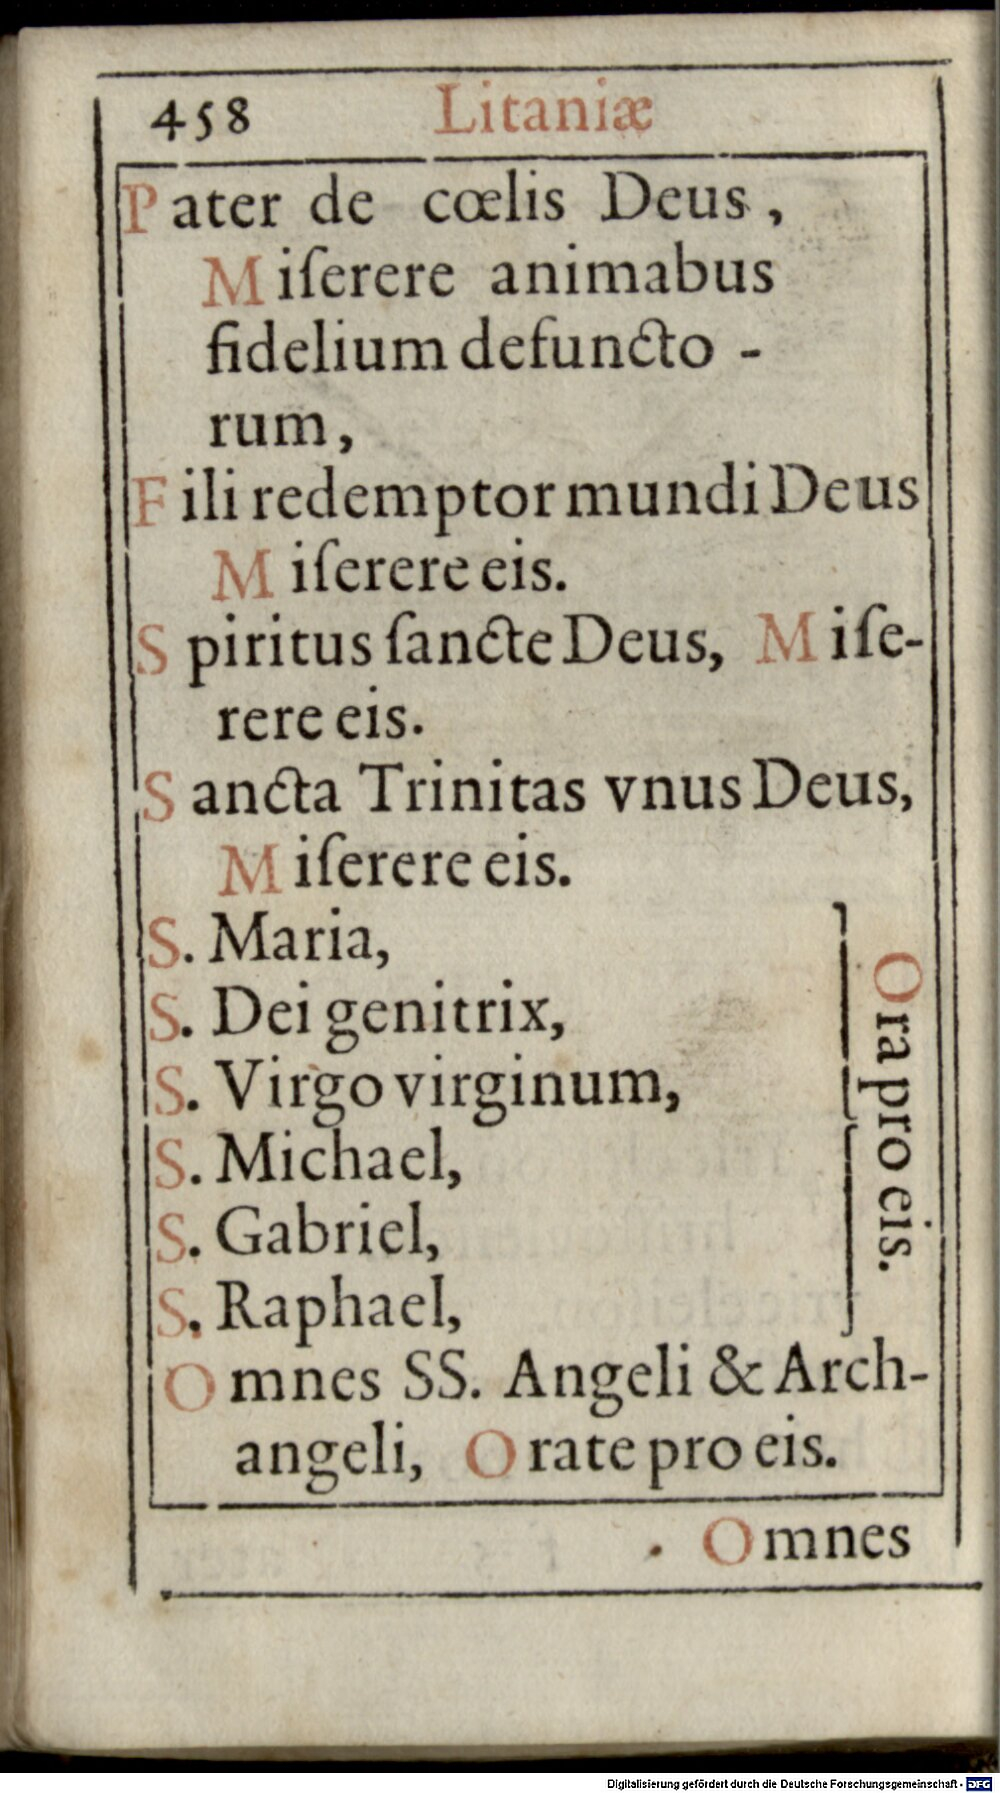 458 Litaniæ
Pater de cœlis Deus,
Miſerere animabus
fidelium defuncto-
rum,
Fili redemptor mundi Deus
Miſerere eis.
Spiritus ſancte Deus, Miſe-
rere eis.
Sancta Trinitas vnus Deus,
Miſerere eis.
S. Maria,
S. Dei genitrix,
S. Virgo virginum,
S. Michael,
S. Gabriel,
S. Raphael,
Ora pro eis.
Omnes SS. Angeli & Arch-
angeli, Orate pro eis.
Omnes
Digitalisierung gefördert durch die Deutsche Forschungsgemeinschaft - DFG